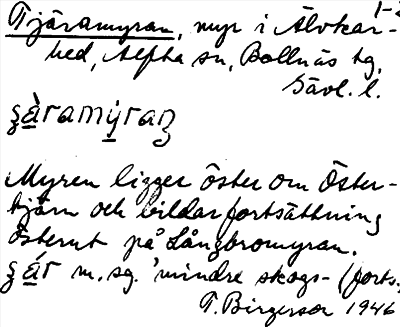 1-2
Tjäramyran, myr i Älvkar-
hed, Alfta sn, Bollnäs tg,
Gävl. l.
ʂàramýraɳ
Myren ligger öster om Öster-
tjärn och bildar fortsättning
österut på Långbromyran.
ʂár m. sg. 'mindre skogs- (forts.
T. Birgersson 1946